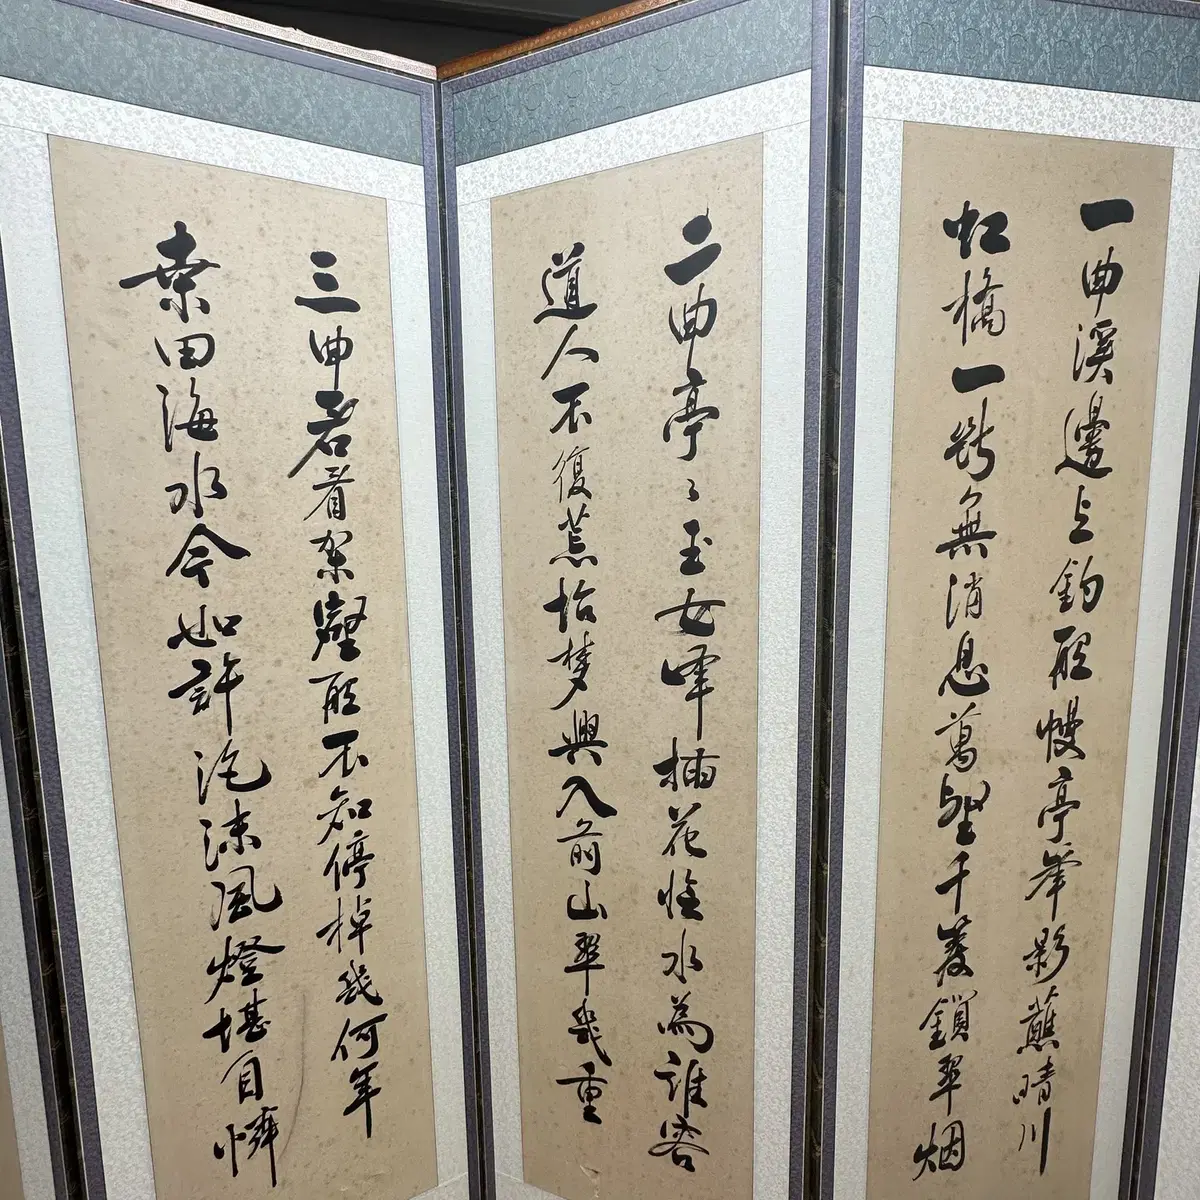 一曲溪邊上釣船幔亭峯影蘸晴川
虹橋一斷無消息萬壑千巖鎖翠烟
二曲亭〻玉女峰插花臨水為誰容
道人不復荒坮夢興入前山翠幾重
三曲君看架壑船不知停棹幾何年
桒田海水今如許泡沫風燈堪自憐